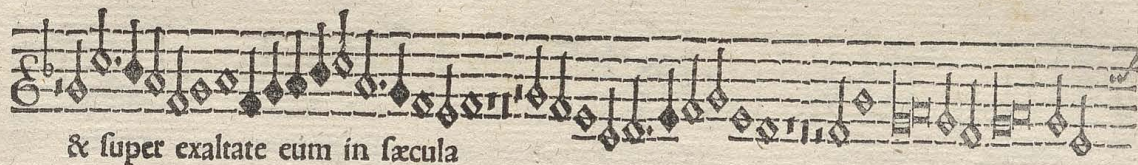 & ſuper exaltate eum in ſæcula